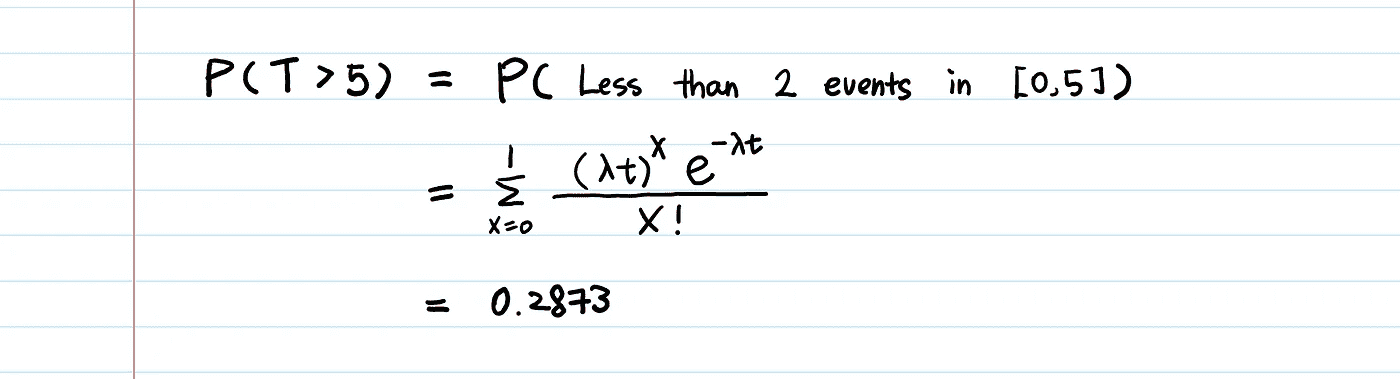 P(T > 5) = P( Less than 2 events in [0,5])
= 1 Σ x=0 (λt)^x e^-λt / x!
= 0.2873